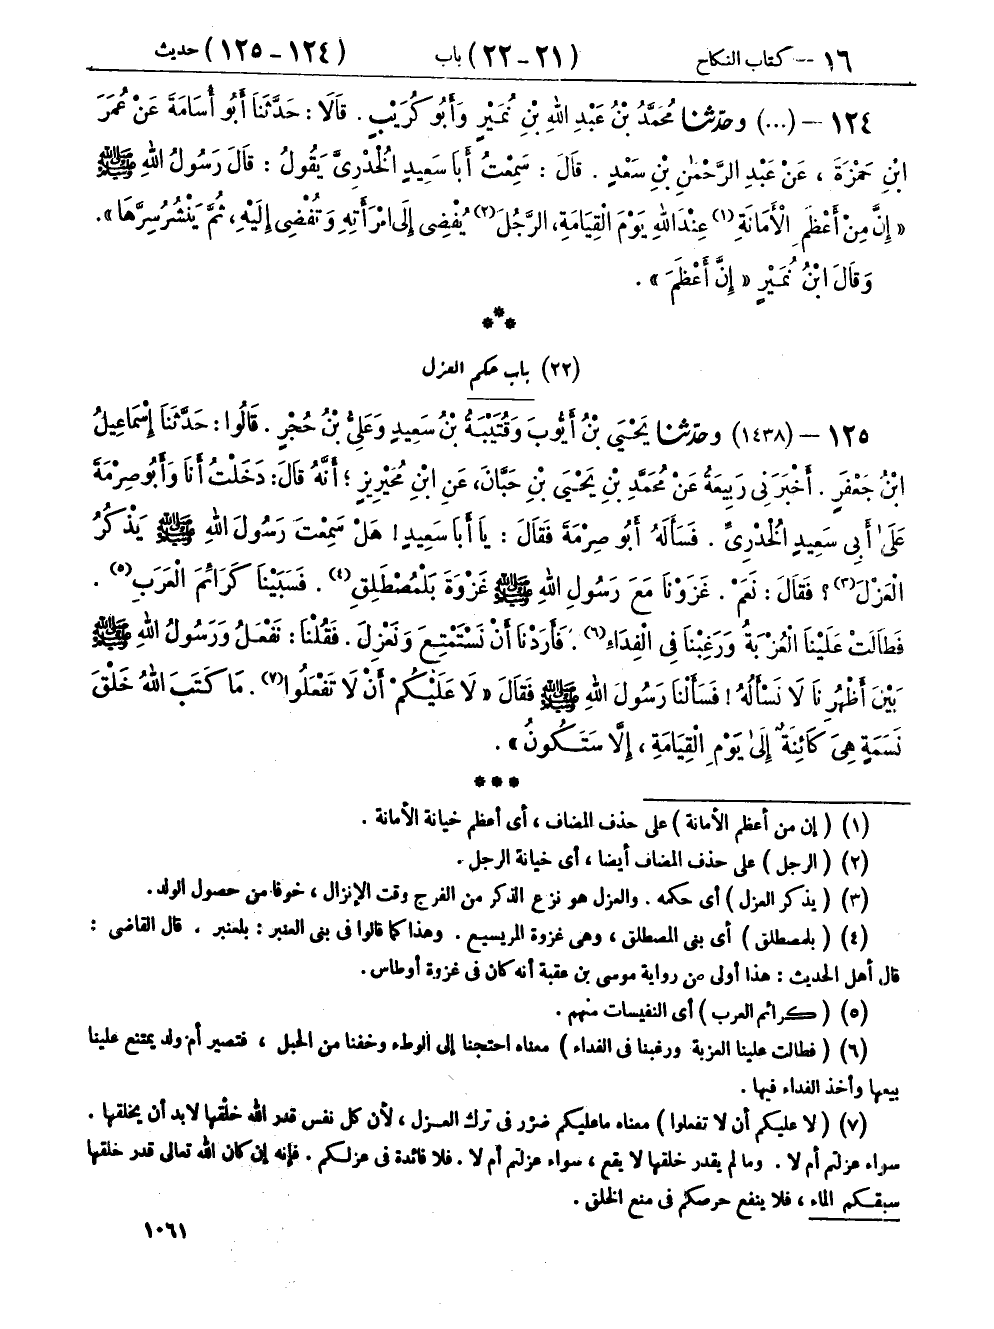 ١٦ -- كتاب النكاح (٢١ - ٢٢) باب (١٢٤ - ١٢٥) حديث
١٢٤ - (...) وحدّثنا مُحَمَّدُ بْنُ عَبْدِ اللهِ بْنِ نُمَيْرٍ وَأَبُو كُرَيْبٍ . قَالَا : حَدَّثَنَا أَبُو أُسَامَةَ عَنْ عُمَرَ
ابْنِ حَمْزَةَ ، عَنْ عَبْدِ الرَّحْمٰنِ بْنِ سَعْدٍ . قَالَ : سَمِعْتُ أَبَا سَعِيدٍ الْخُدْرِىَّ يَقُولُ : قَالَ رَسُولُ اللهِ ﷺ
« إِنَّ مِنْ أَعْظَمِ الْأَمَانَةِ (١) عِنْدَ اللهِ يَوْمَ الْقِيَامَةِ، الرَّجُلَ (٢) يُفْضِى إِلَى امْرَأَتِهِ وَتُفْضِى إِلَيْهِ، ثُمَّ يَنْشُرُ سِرَّهَا ».
وَقَالَ ابْنُ نُمَيْرٍ « إِنَّ أَعْظَمَ » .
***
(٢٢) باب حكم العزل
١٢٥ - (١٤٣٨) وحدّثنا يَحْيَى بْنُ أَيُّوبَ وَقُتَيْبَةُ بْنُ سَعِيدٍ وَعَلِىُّ بْنُ حُجْرٍ . قَالُوا : حَدَّثَنَا إِسْمَاعِيلُ
ابْنُ جَعْفَرٍ . أَخْبَرَنِى رَبِيعَةُ عَنْ مُحَمَّدِ بْنِ يَحْيَى بْنِ حَبَّانَ، عَنِ ابْنِ مُحَيْرِيزٍ ؛ أَنَّهُ قَالَ: دَخَلْتُ أَنَا وَأَبُو صِرْمَةَ
عَلَىٰ أَبِى سَعِيدٍ الْخُدْرِىِّ . فَسَأَلَهُ أَبُو صِرْمَةَ فَقَالَ : يَا أَبَا سَعِيدٍ! هَلْ سَمِعْتَ رَسُولَ اللهِ ﷺ يَذْكُرُ
الْعَزْلَ (٣) ؟ فَقَالَ : نَعَمْ . غَزَوْنَا مَعَ رَسُولِ اللهِ ﷺ غَزْوَةَ بَلْمُصْطَلِقِ (٤) . فَسَبَيْنَا كَرَائِمَ الْعَرَبِ (٥) .
فَطَالَتْ عَلَيْنَا الْعُزْبَةُ وَرَغِبْنَا فِى الْفِدَاءِ (٦) . فَأَرَدْنَا أَنْ نَسْتَمْتِعَ وَنَعْزِلَ . فَقُلْنَا: نَفْعَلُ وَرَسُولُ اللهِ ﷺ
بَيْنَ أَظْهُرِنَا لَا نَسْأَلُهُ ! فَسَأَلْنَا رَسُولَ اللهِ ﷺ فَقَالَ « لَا عَلَيْكُمْ أَنْ لَا تَفْعَلُوا (٧) . مَا كَتَبَ اللهُ خَلْقَ
نَسَمَةٍ هِىَ كَائِنَةٌ إِلَىٰ يَوْمِ الْقِيَامَةِ ، إِلَّا سَتَكُونُ » .
***
(١) ( إن من أعظم الأمانة ) على حذف المضاف ، أى أعظم خيانة الأمانة .
(٢) ( الرجل ) على حذف المضاف أيضا ، أى خيانة الرجل .
(٣) ( يذكر العزل ) أى حكمه . والعزل هو نزع الذكر من الفرج وقت الإنزال ، خوفا من حصول الولد.
(٤) ( بلمصطلق ) أى بنى المصطلق ، وهى غزوة المريسيع . وهذا كما قالوا فى بنى العنبر : بلعنبر . قال القاضى :
قال أهل الحديث : هذا أولى من رواية موسى بن عقبة أنه كان فى غزوة أوطاس.
(٥) ( كرائم العرب ) أى النفيسات منهم .
(٦) ( فطالت علينا العزبة ورغبنا فى الفداء ) معناه احتجنا إلى الوطء وخفنا من الحبل ، فتصير أم ولد يمتنع علينا
بيعها وأخذ الفداء فيها .
(٧) ( لا عليكم أن لا تفعلوا ) معناه ما عليكم ضرر فى ترك العزل ، لأن كل نفس قدر الله خلْقها لابد أن يخلقها .
سواء عزلتم أم لا . وما لم يقدر خلقها لا يقع ، سواء عزلتم أم لا . فلا فائدة فى عزلكم . فإنه إن كان الله تعالى قدر خلقها
سبقكم الماء ، فلا ينفع حرصكم فى منع الخلق .
١٠٦١